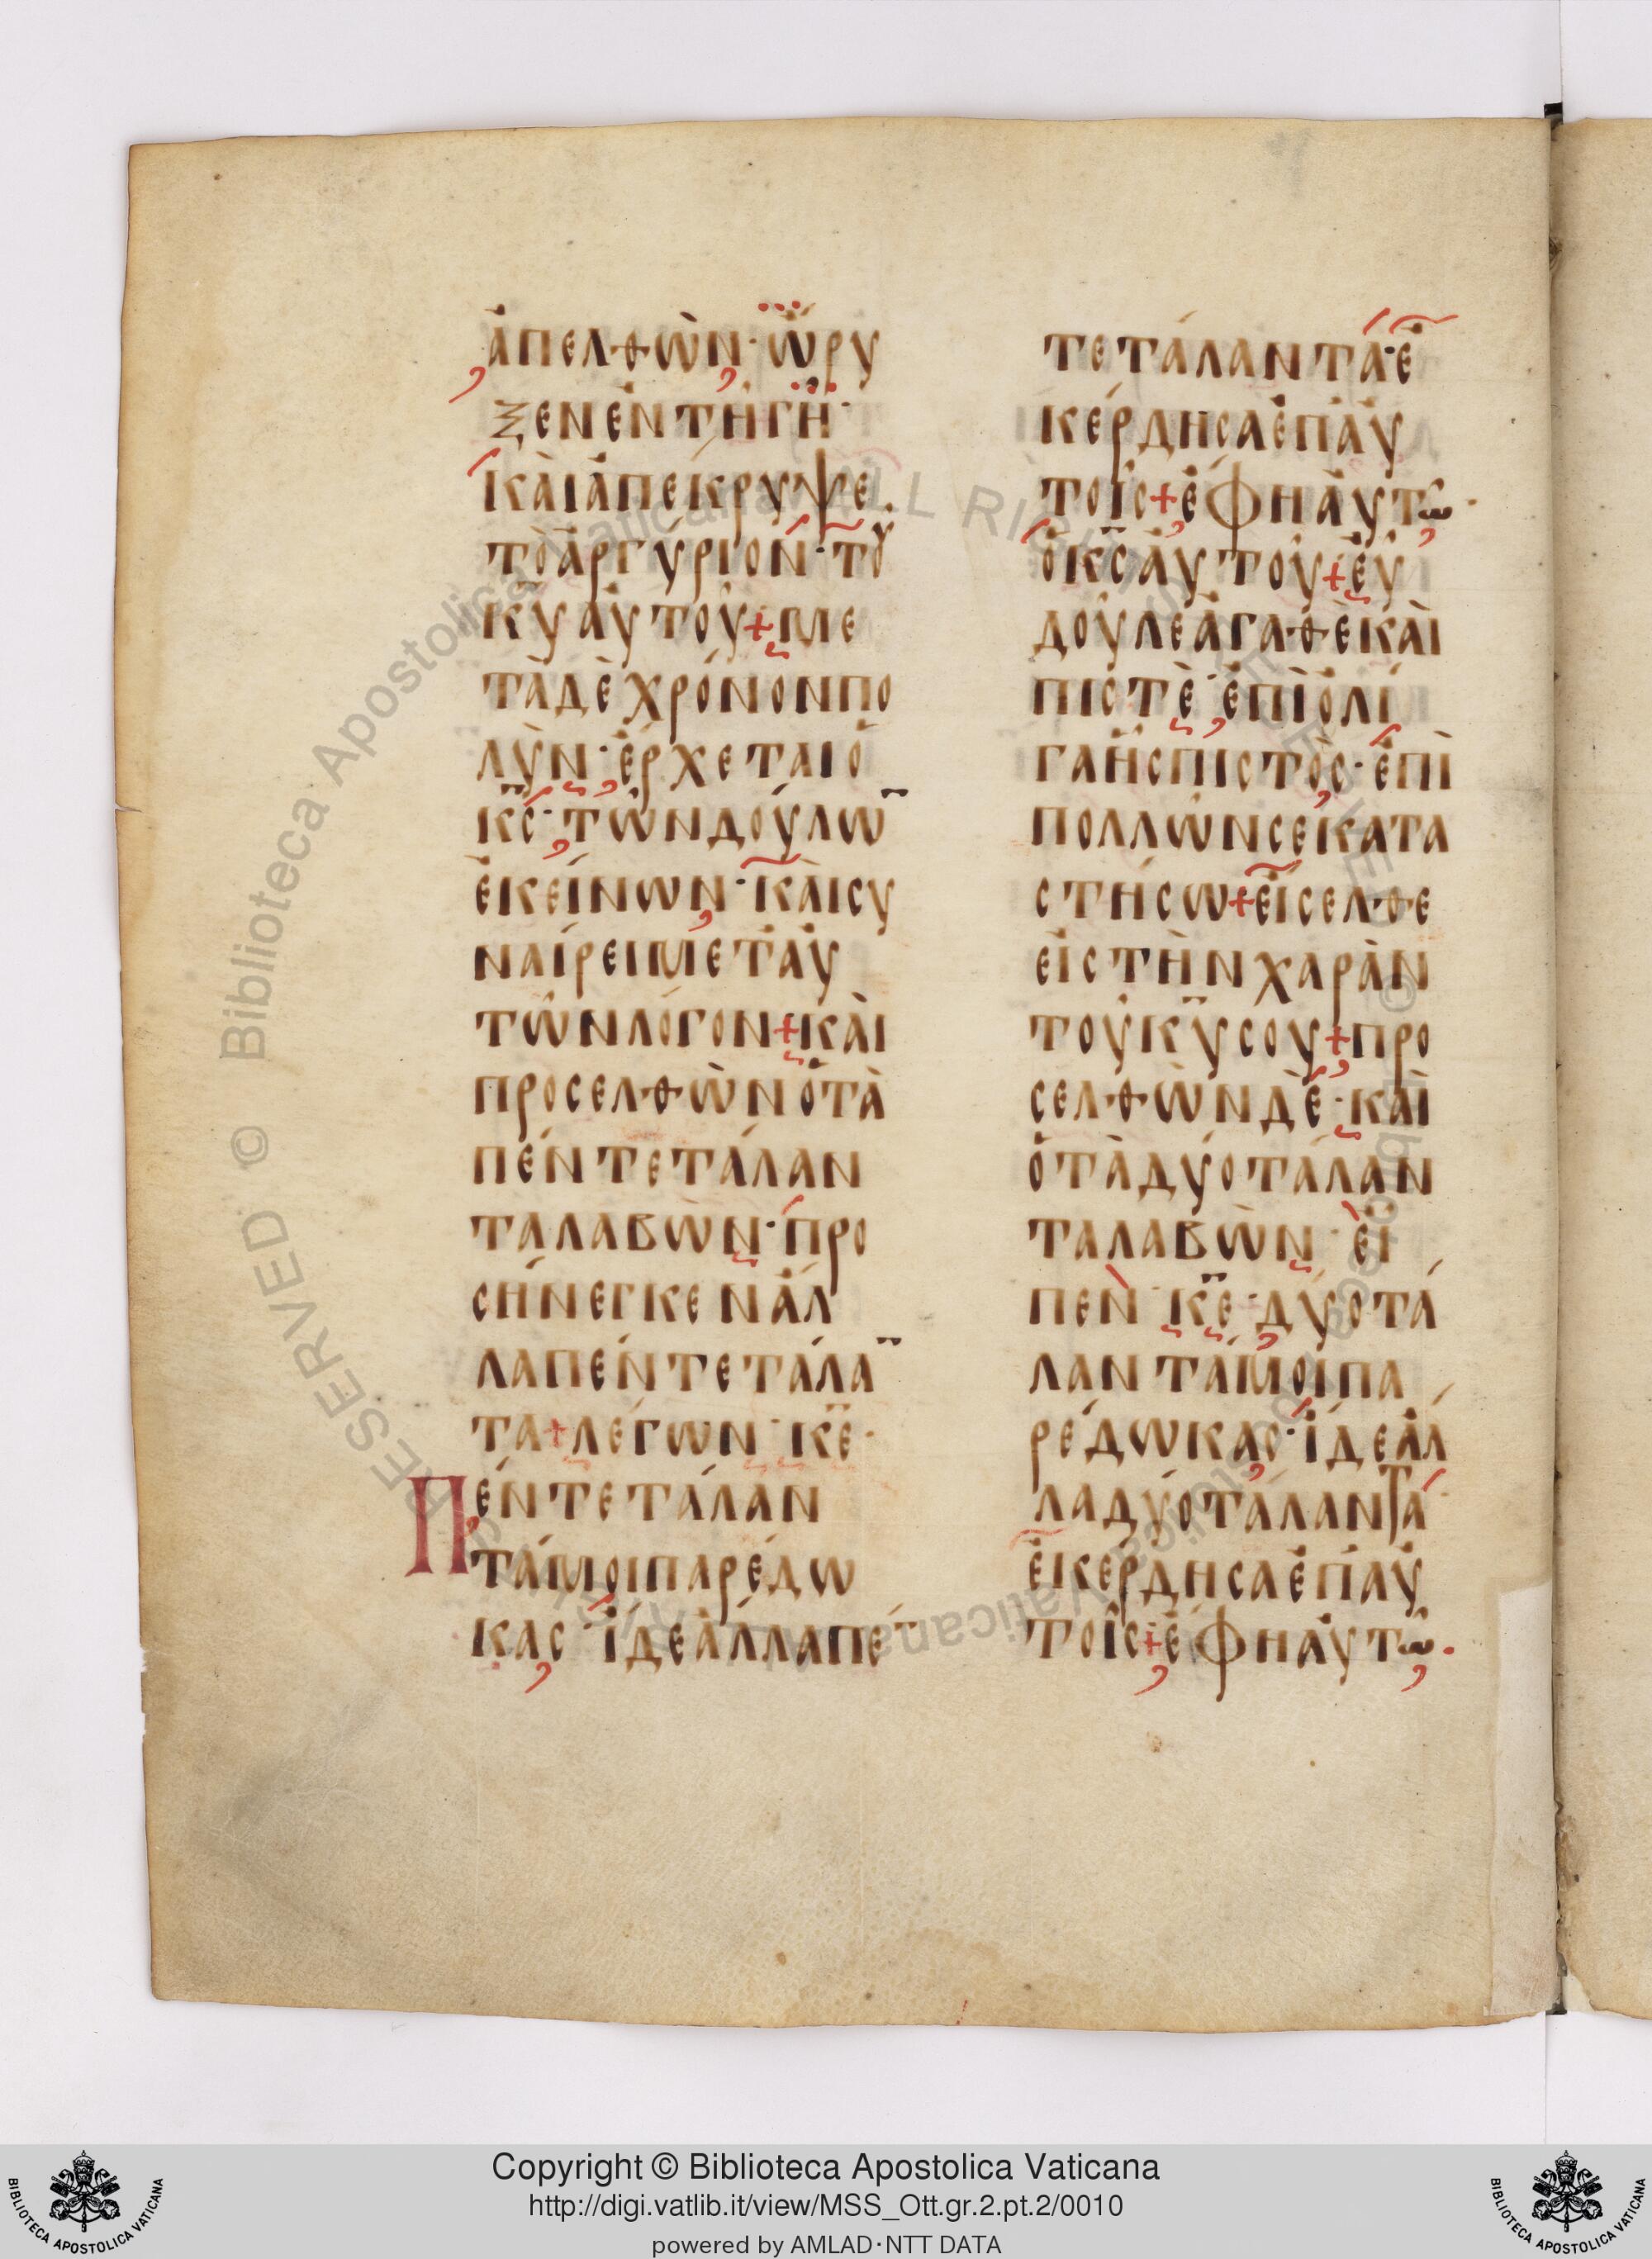 ἀπελθὼν·ὤρυ
ξενἐντῆγῆ·
κὰιἀπέκρυψε.
τὸἀργύριον·τοῦ
κ̅υ̅ἀυτοῦ+με
τὰδὲχρόνονπο
λὺν·ἔρχεταιὁ
κ̅ς̅·τῶνδούλω̅
ἐκείνων·κὰισυ
ναίρειμετἀυ
τῶνλόγον+κὰι
προσελθὼνὁτὰ
πέντετάλαν
ταλαβὼν·προ
σήνεγκενἄλ
λαπέντετάλα̅
τα+λέγων·κ̅ε̅·
Πέντετάλαν
τάμοιπαρέδω
κας·ἴδεἄλλαπέ̅
τετάλαντα·ἐ
κέρδησαἐπἀυ
τοῖς+ἔφηἀυτῶ·
ὁκ̅ς̅ἀυτοῦ+ἐῦ
δοῦλεἀγαθὲκὰι
πιστὲ·ἐπὶὀλί
γαἦςπιστὸς·ἐπὶ
πολλῶνσεκατα
στήσω+ἔισελθε
ἐιςτὴνχαρὰν
τοῦκ̅υ̅σου+προ
σελθὼνδὲ·κὰι
ὁτὰδύοτάλαν
ταλαβὼν·ἐῖ
πεν·κ̅ε̅·δύοτά
λαντάμοιπα
ρέδωκας·ἴδεἄλ
λαδύοτάλαντα·
ἐκέρδησαἐπἀυ
τοῖς+ἔφηἀυτῶ·
Copyright © Biblioteca Apostolica Vaticana
http://digi.vatlib.it/view/MSS_Ott.gr.2.pt.2/0010
powered by AMLAD·NTT DATA
BIBLIOTECA APOSTOLICA VATICANA
BIBLIOTECA APOSTOLICA VATICANA